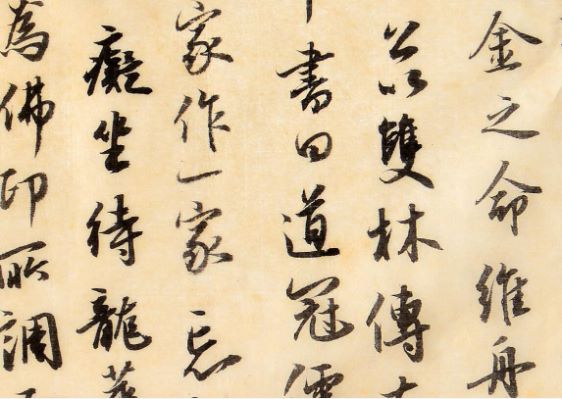 金之命維舟
以雙林傅
書曰道冠儒
家作一家忘
癡坐待龍華
為佛印所調